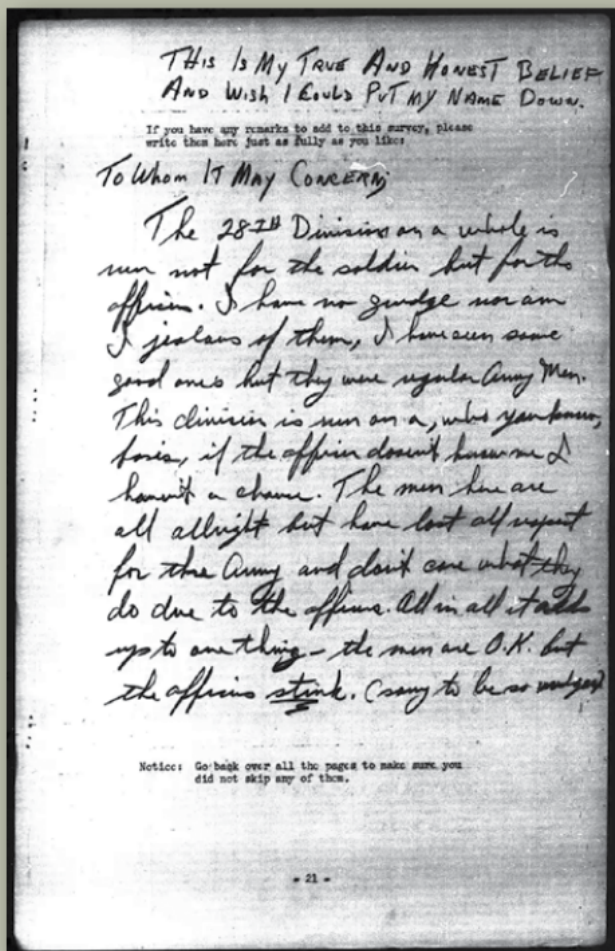 THIS IS MY TRUE AND HONEST BELIEF
AND WISH I COULD PUT MY NAME DOWN.
If you have any remarks to add to this survey, please
write them here just as fully as you like:
TO WHOM IT MAY CONCERN;
The 28TH Division on a whole is
run not for the soldier but for the
officers. I have no grudge nor am
I jealous of them, I have seen some
good ones but they were regular Army Men.
This division is run on a, who you know,
basis, if the officer dosen't know me I
haven't a chance. The men here are
all allright but have lost all respect
for the Army and don't care what they
do due to the officers. All in all it adds
up to one thing - the men are O.K. but
the officers stink. (sorry to be so vulgar)
Notice: Go back over all the pages to make sure you
did not skip any of them.
- 21 -